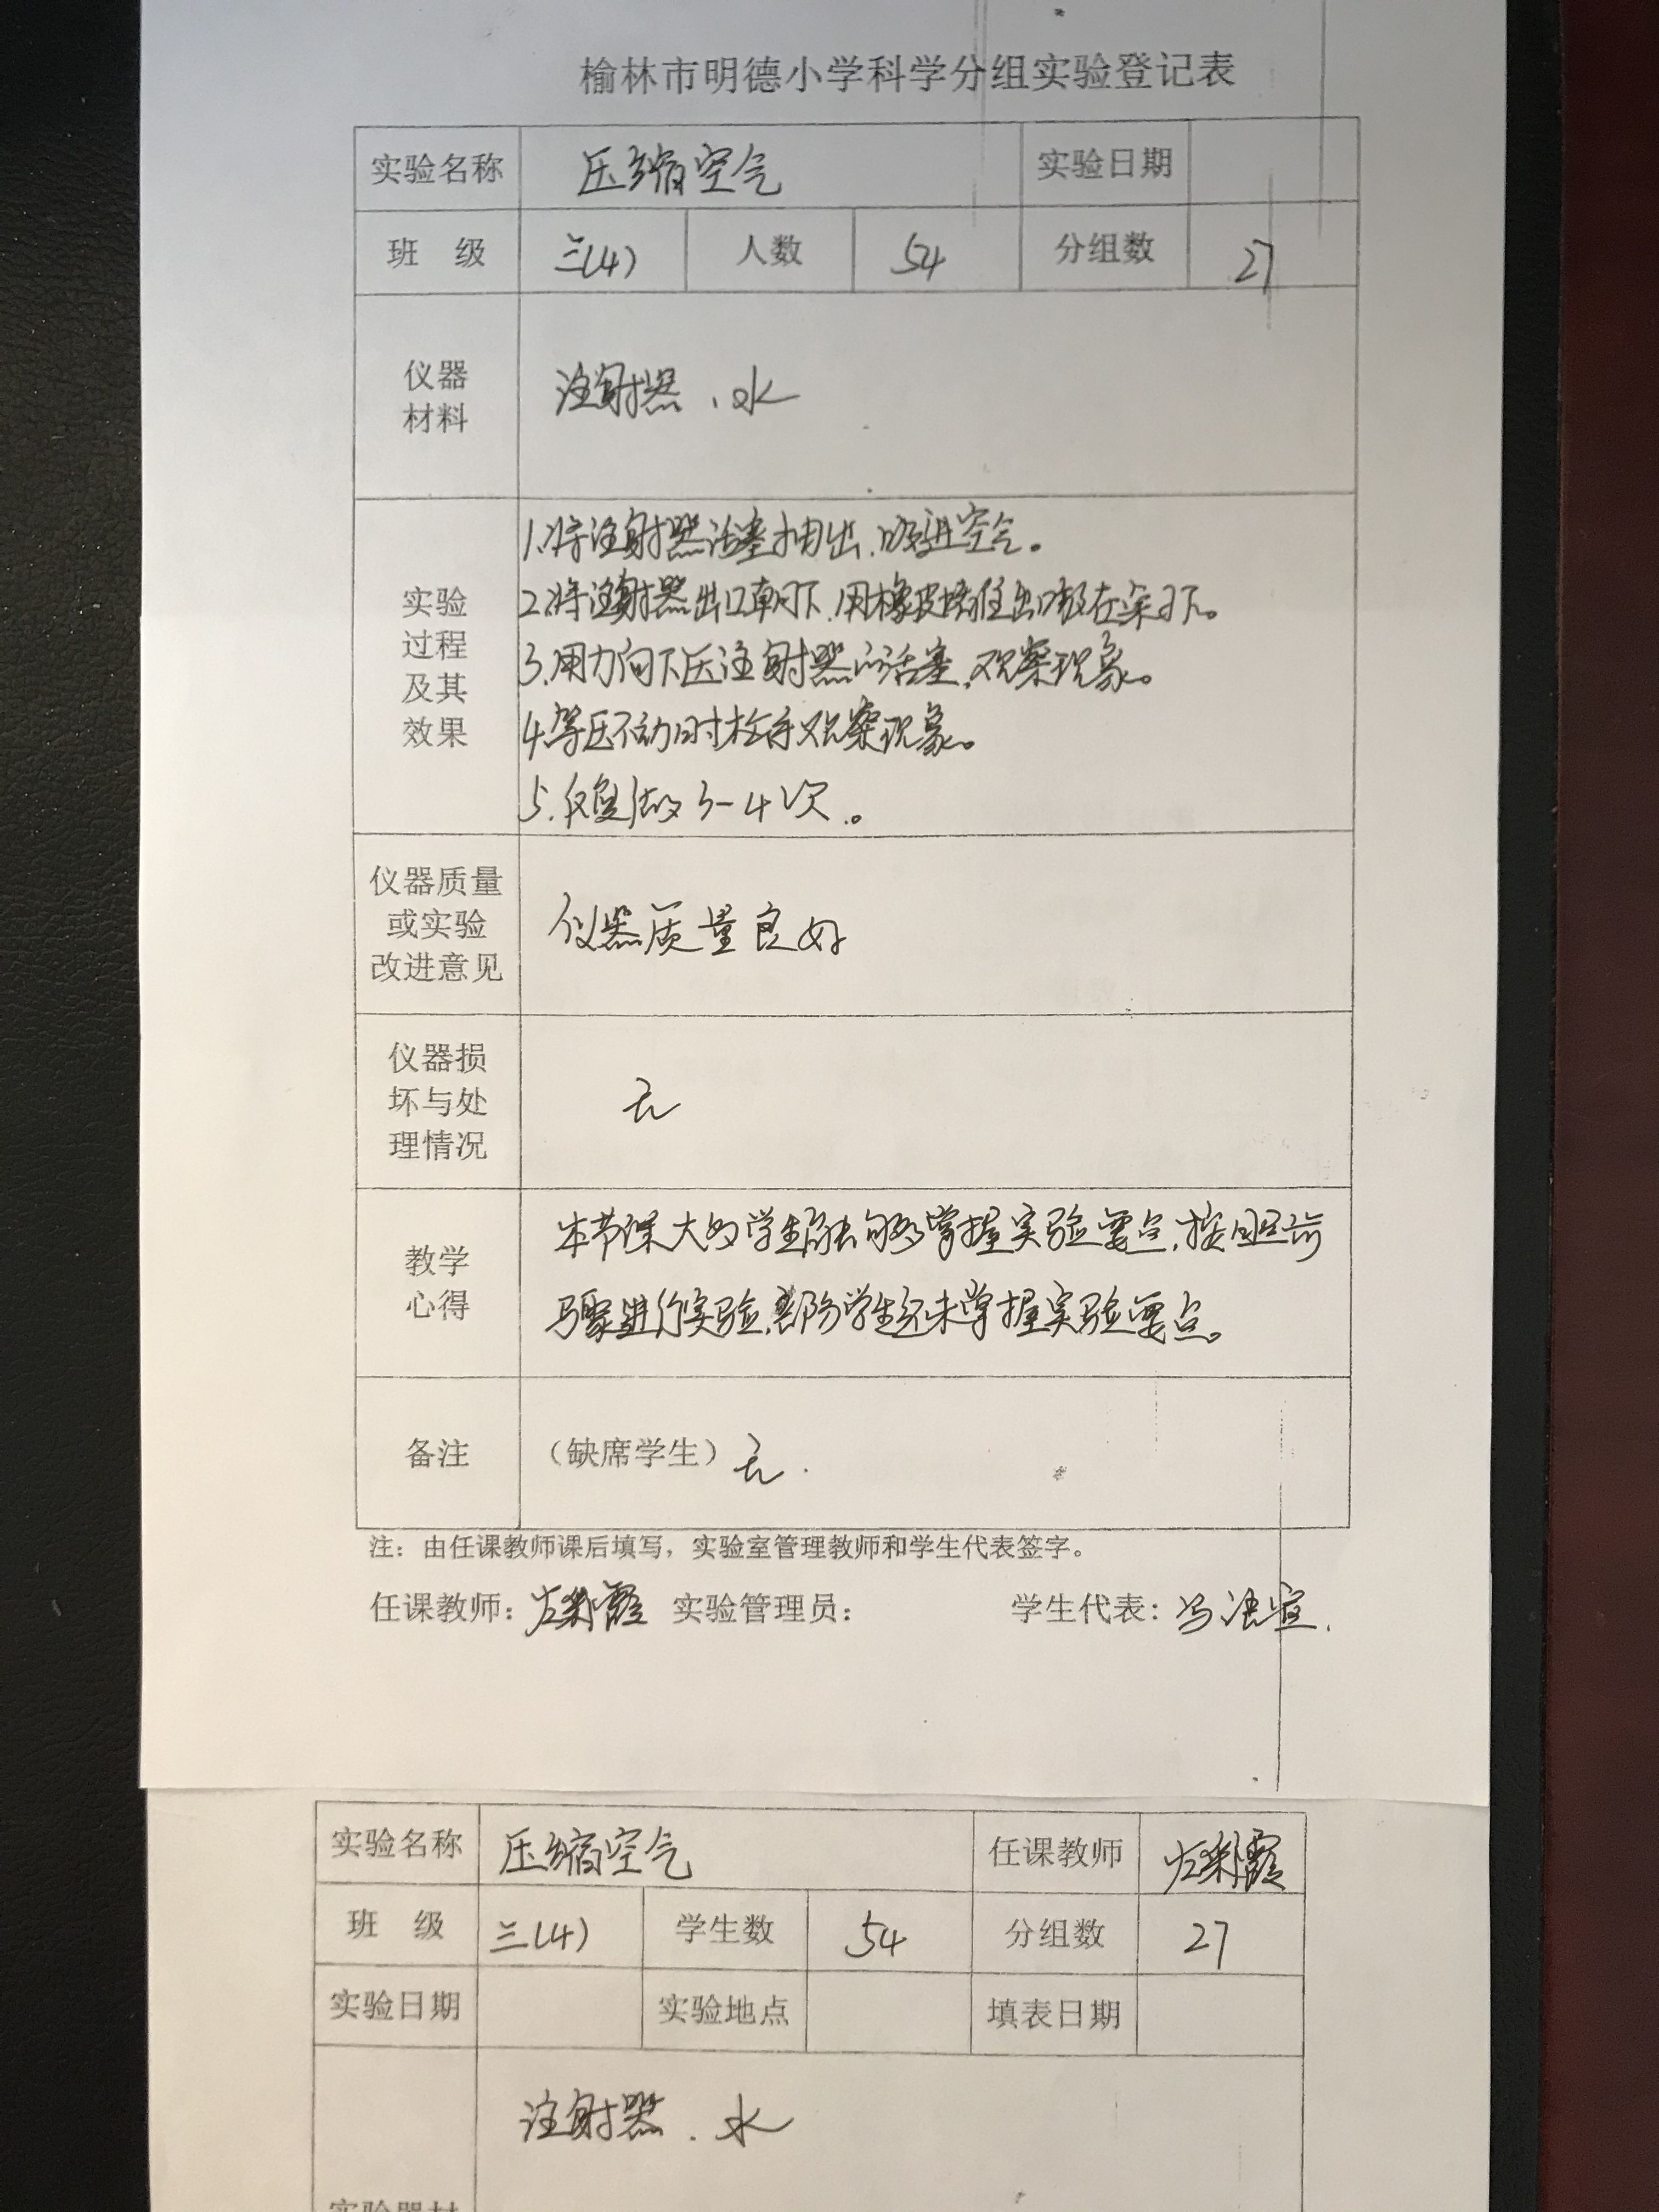 榆林市明德小学科学分组实验登记表
实验名称 压缩空气 实验日期
班 级 三(4) 人数 54 分组数 27
仪器
材料
注射器、水
实验
过程
及其
效果
1.将注射器活塞抽出、吸进空气。
2.将注射器出口朝下、用橡皮堵住出口放在桌下。
3.用力向下压注射器的活塞,观察现象。
4.等压不动时松手观察现象。
5.反复做3-4次。
仪器质量
或实验
改进意见
仪器质量良好
仪器损
坏与处
理情况
无
教学
心得
本节课大多学生能够掌握实验要点,按照
骤进行实验,部分学生还未掌握实验要点。
备注 (缺席学生) 无.
注:由任课教师课后填写,实验室管理教师和学生代表签字。
任课教师: 彩霞 实验管理员: 学生代表: 冯
实验名称 压缩空气 任课教师 彩霞
班 级 三(4) 学生数 54 分组数 27
实验日期 实验地点 填表日期
注射器.水
实验器材